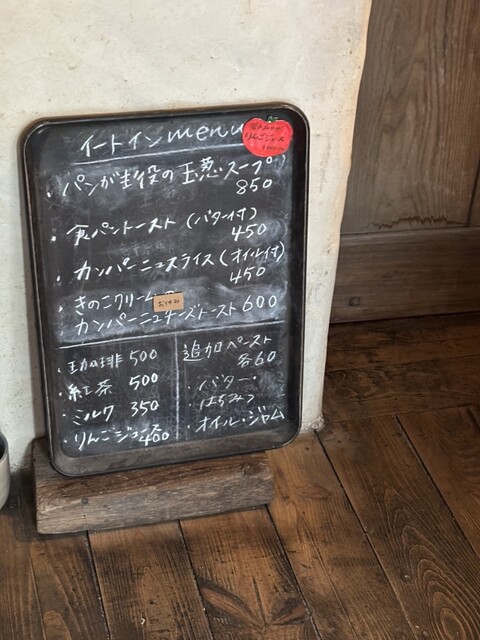 イートインmenu
りんごジュース
・パンが主役の玉葱スープ
850
・食パントースト(バター付)
450
・カンパーニュスライス(オイル付)
450
・きのこクリームの
カンパーニュチーズトースト 600
・珈琲 500
・紅茶 500
・ミルク 350
・りんごジュース
400
追加ペースト
各60
・バター・
はちみつ
・オイル・ジャム